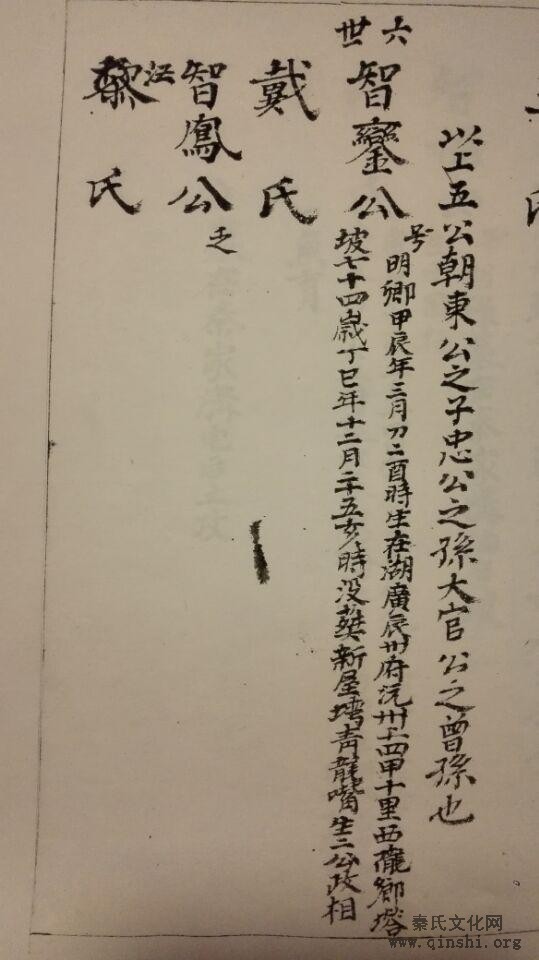 以上五公朝東公之子忠公之孫大官公之曾孫也
六世
智鑾公
号明卿甲辰年三月刀二酉時生在湖廣辰州府沅州上四甲十里西隴鄉塔
坡七十四歲丁巳年十二月二十五亥時没葬新屋塆青龍嘴生二公政相
戴氏
智鳳公
之
江
黎氏
秦氏文化网
www.qinshi.org